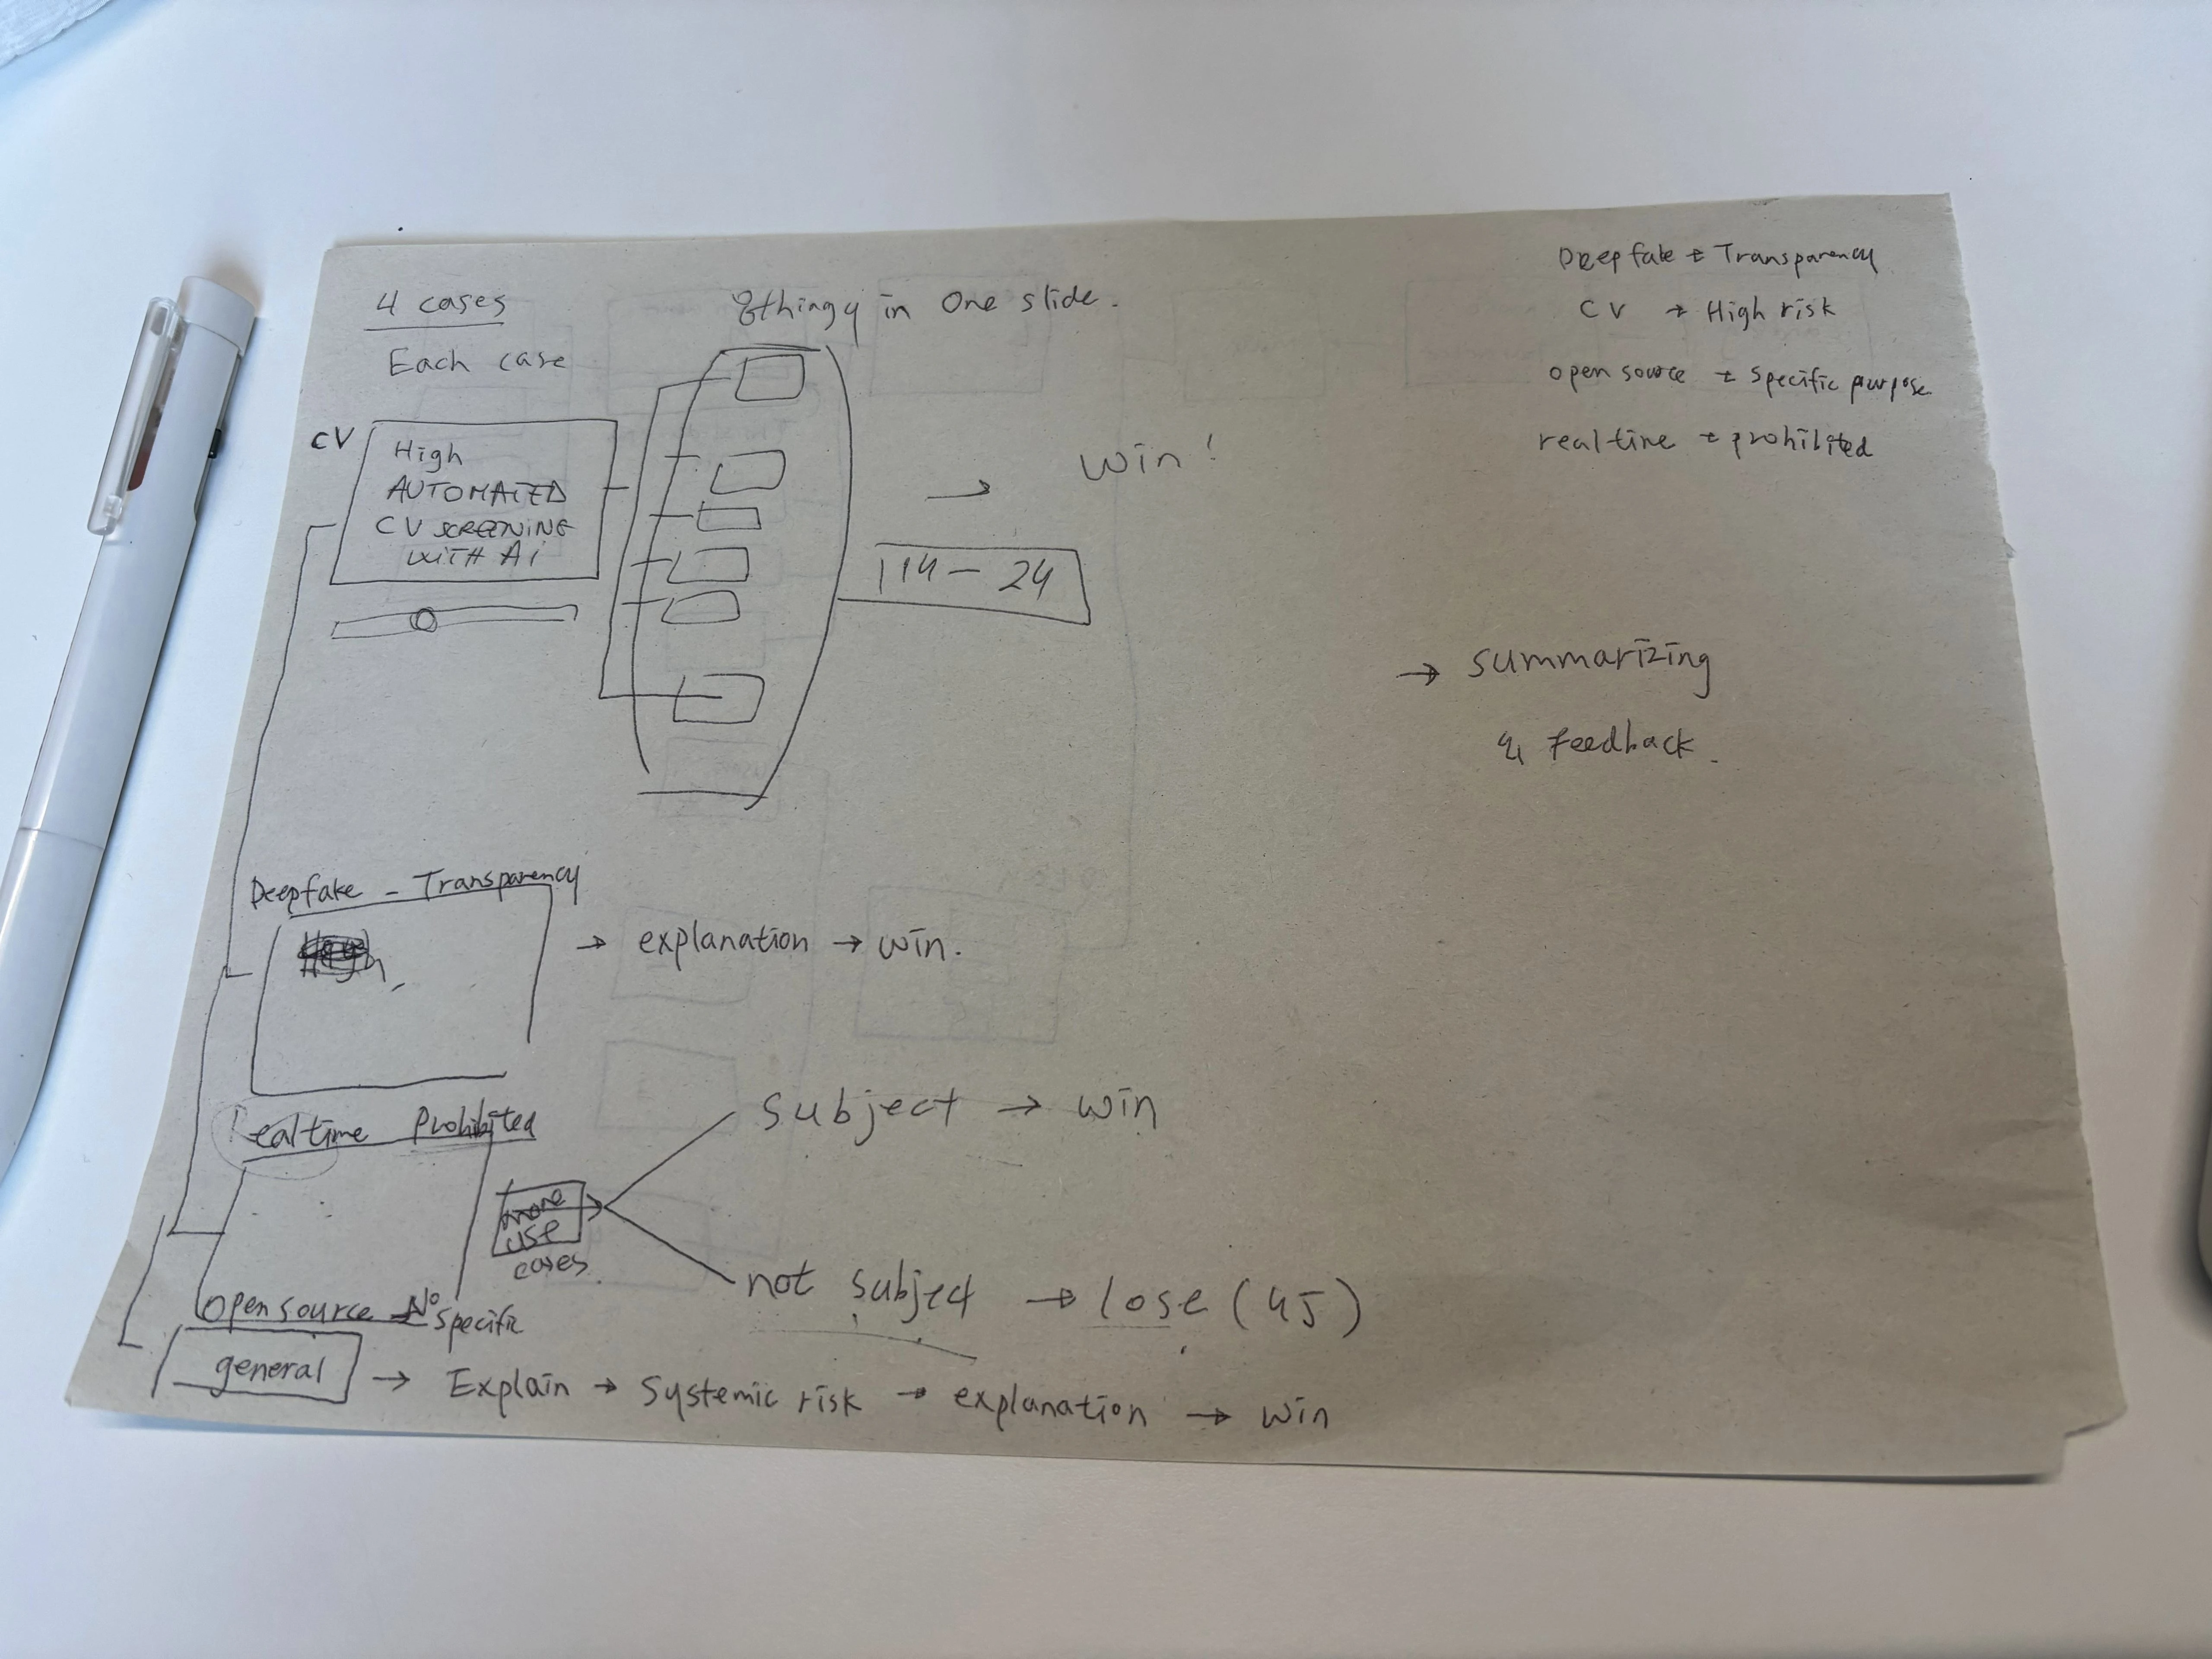 4 cases
Each case
in One slide.
CV
High
AUTOMATED
CV SCREENING
WITH Ai
→ win!
114 - 24
Deepfake → Transparency
CV → High risk
open source → specific purpose
realtime → prohibited
→ summarizing
& Feedback.
Deepfake - Transparency
→ explanation → win.
Realtime Prohibited
more
use
cases.
subject → win
not subject → lose (45)
Open source → No
specific
general → Explain → Systemic risk → explanation → win